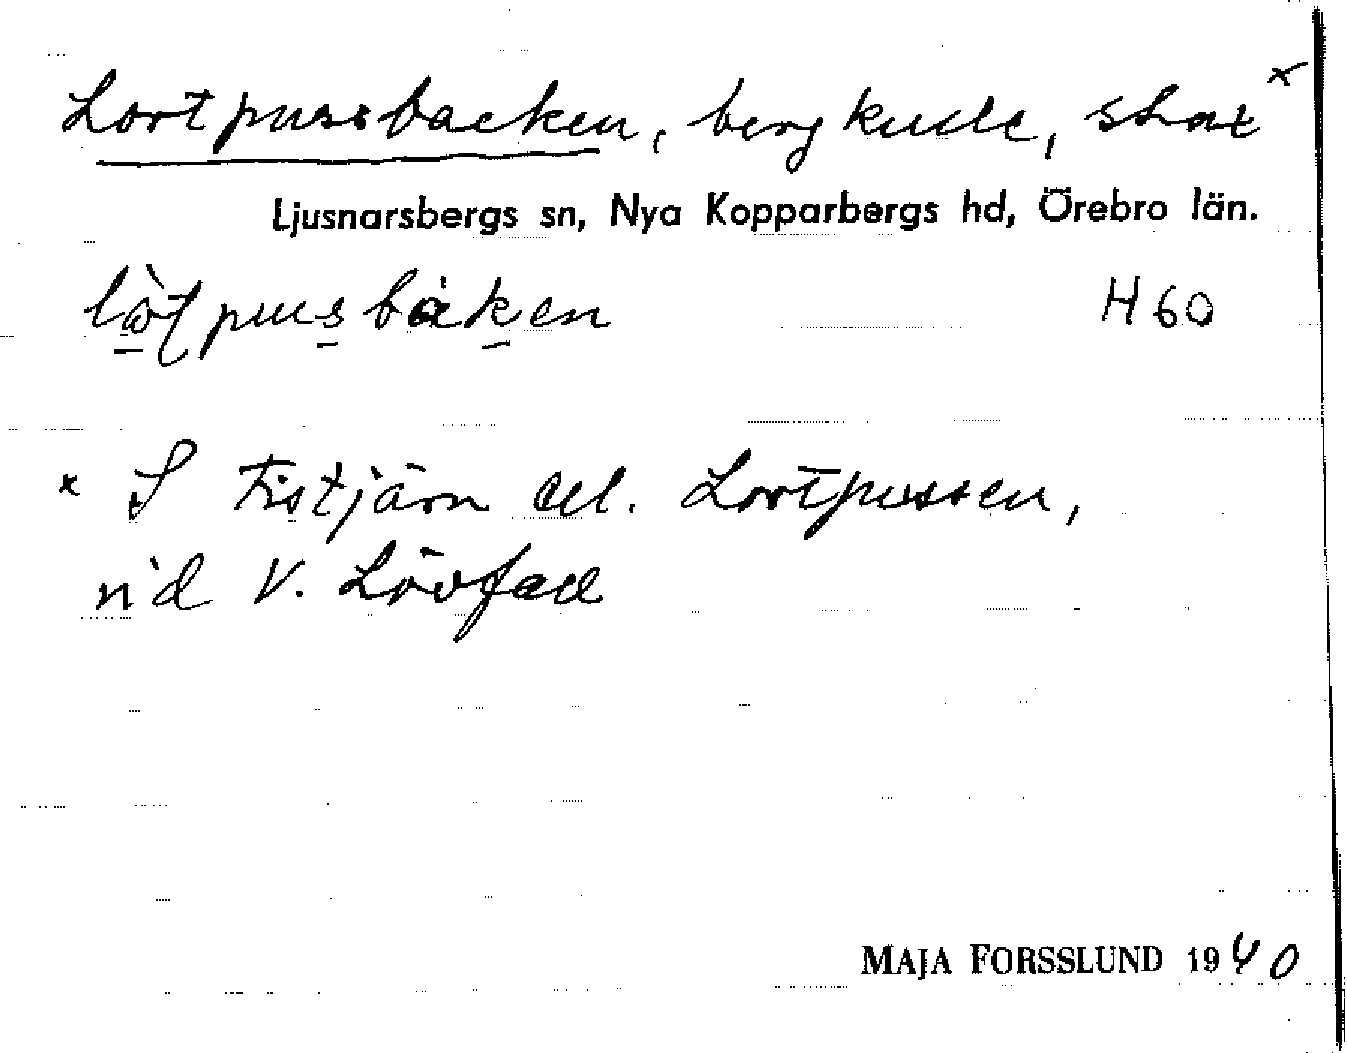 Lortpussbacken, bergkulle, skat x
Ljusnarsbergs sn, Nya Kopparbergs hd, Örebro län.
lòʈpusbàken H60
x S Fistjärn ell. Lortpussen,
vid V. Lövfall
MAJA FORSSLUND 1940